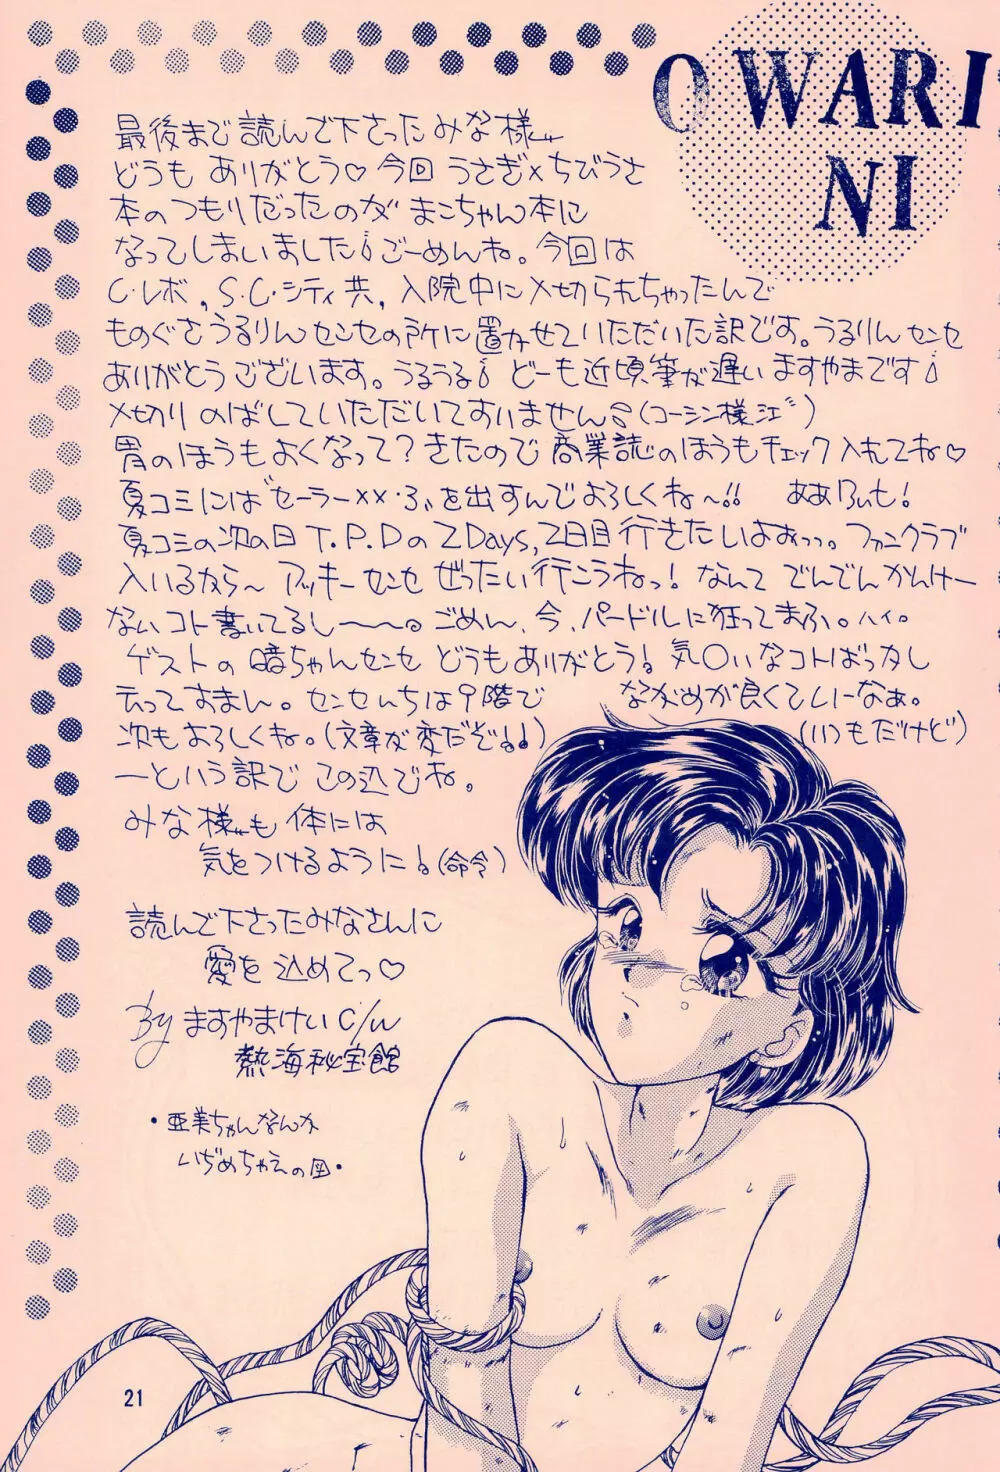 OWARI
NI
最後まで読んで下さったみな様
どうもありがとう♡今回うさぎ×ちびうさ
本のつもりだったのが まこちゃん本に
なってしまいました！ごーめんね。今回は
C・レボ，S.C.シティ共，入院中に〆切られちゃったんで
ものぐさうるりんセンセの所に置かせていただいた訳です。うるりんセンセ
ありがとうございます。うるうる！どーも近頃筆が遅いますやまです！
〆切りのばしていただいてすいません（コーシン様江）
胃のほうもよくなって？きたので商業誌のほうもチェック入れてね♡
夏コミには〝セーラー××・ぶを出すんでよろしくね〜!!
夏コミの次の日T.P.Dの2Days，2日目行きたいよおっっ。ファンクラブ
入いるなら〜アッキーセンセぜったい行こうねっ！なんてでんでんかんけー
ないコト書いてるし〜〜。ごめん、今、パードルに狂ってまふ。ハイ。
ゲストの暗ちゃんセンセどうもありがとう！気〇ぃなコトばっかし
云ってすまん。センセんちは9階で ながめが良くていーなぁ。
次もよろしくね。(文章が変だぞ!!) (いつもだけど)
―という訳でこの辺でね。
みな様も体には
気をつけるように！(命令)
読んで下さったみなさんに
愛を込めてっ♡
By ますやまけい c/w
熱海秘宝館
21